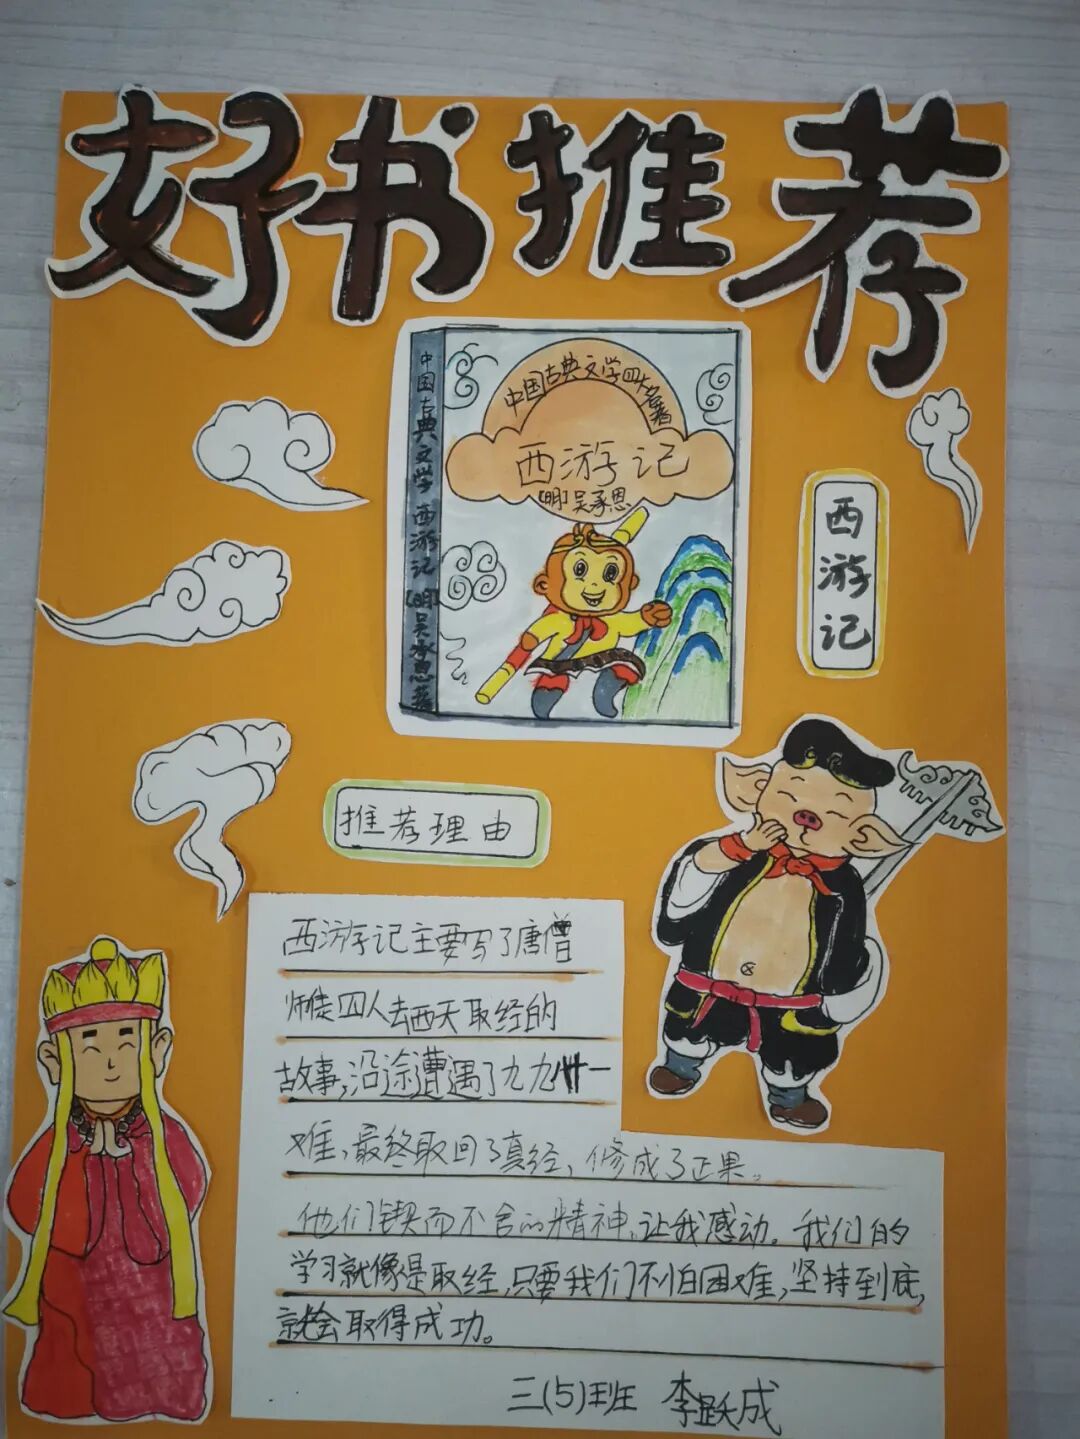 好书推荐
中国古典文学 西游记 [明]吴承恩著
中国古典文学四大名著
西游记
[明]吴承恩
西游记
推荐理由
西游记主要写了唐僧
师徒四人去西天取经的
故事,沿途遭遇了九九一
难,最终取回了真经,修成了正果。
他们锲而不舍的精神,让我感动。我们的
学习就像是取经,只要我们不怕困难,坚持到底,
就会取得成功。
三(5)班 李跃成